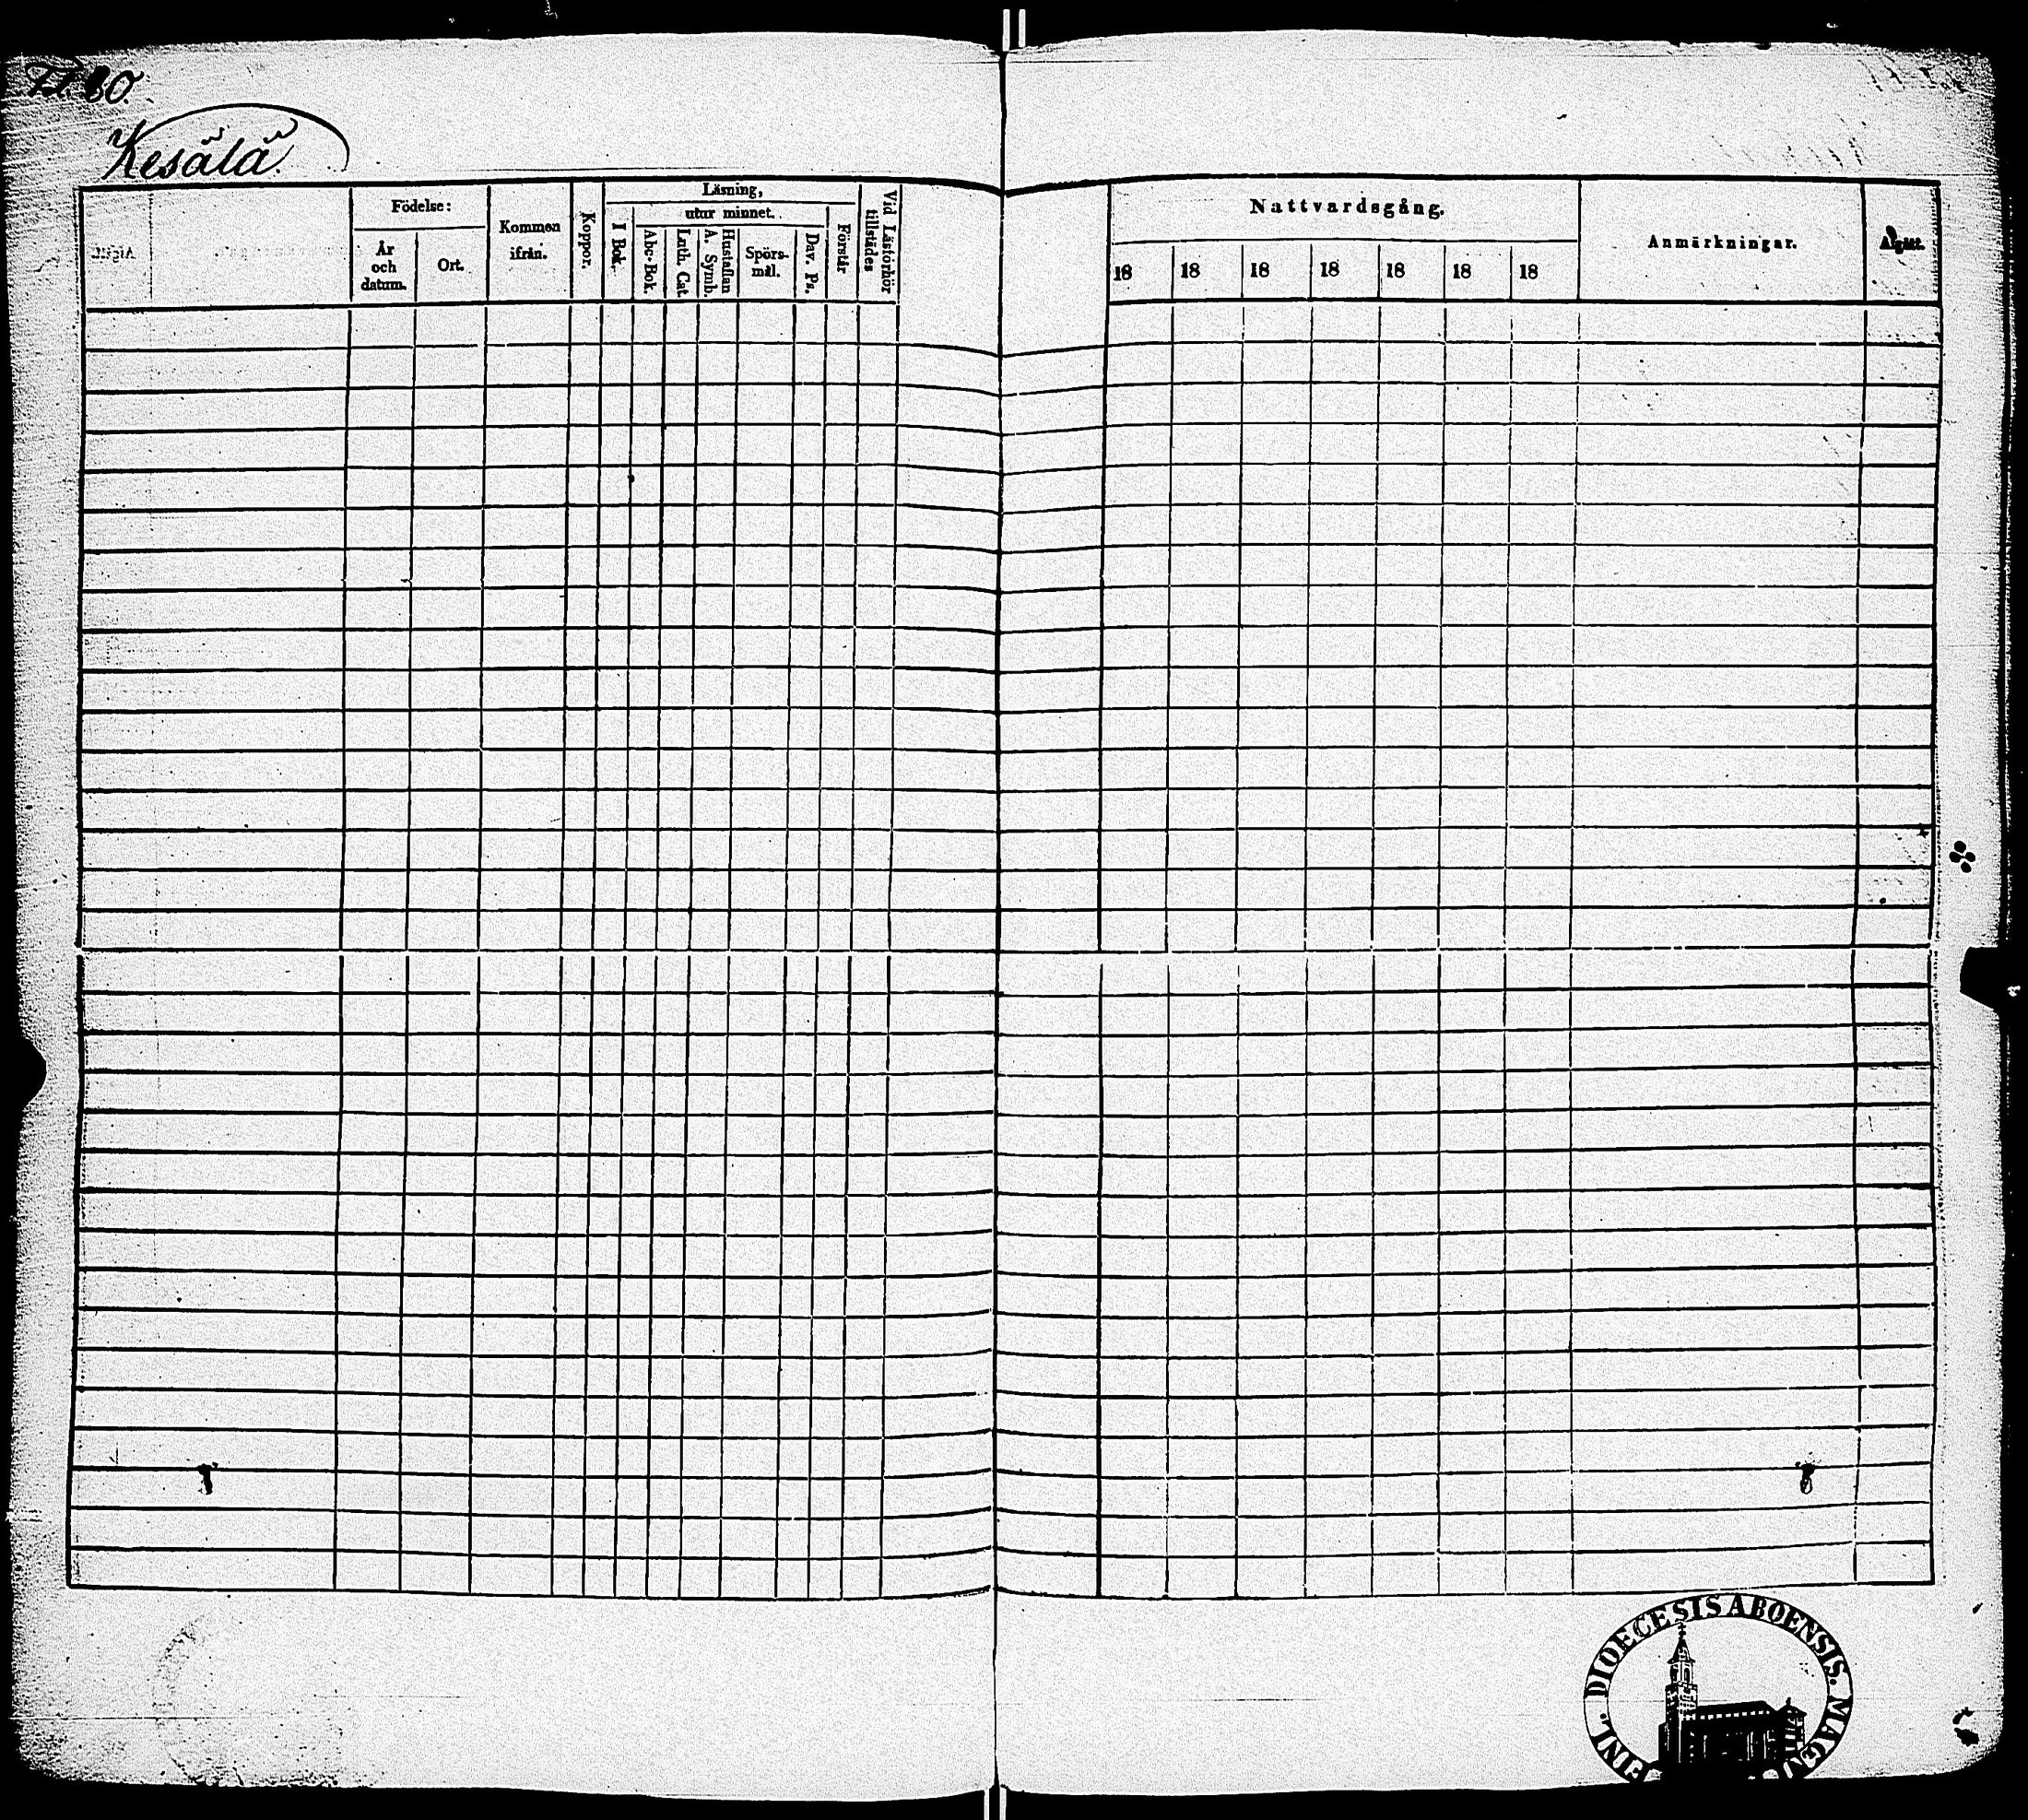 Kesälä.
Födelse:
År och datum.
Ort.
Kommen ifrån.
Koppor.
Läsning,
utur minnet.
I Bok.
Abc-Bok.
Luth. Cat.
A. Symb.
Hustaflan
Spörsmål.
Dav. Ps.
Förstår
Vid Läsförhör tillstädes
Nattvardsgång.
18 18 18 18 18 18 18
Anmärkningar.
Afgått.
DIOECESIS ABOENSIS.